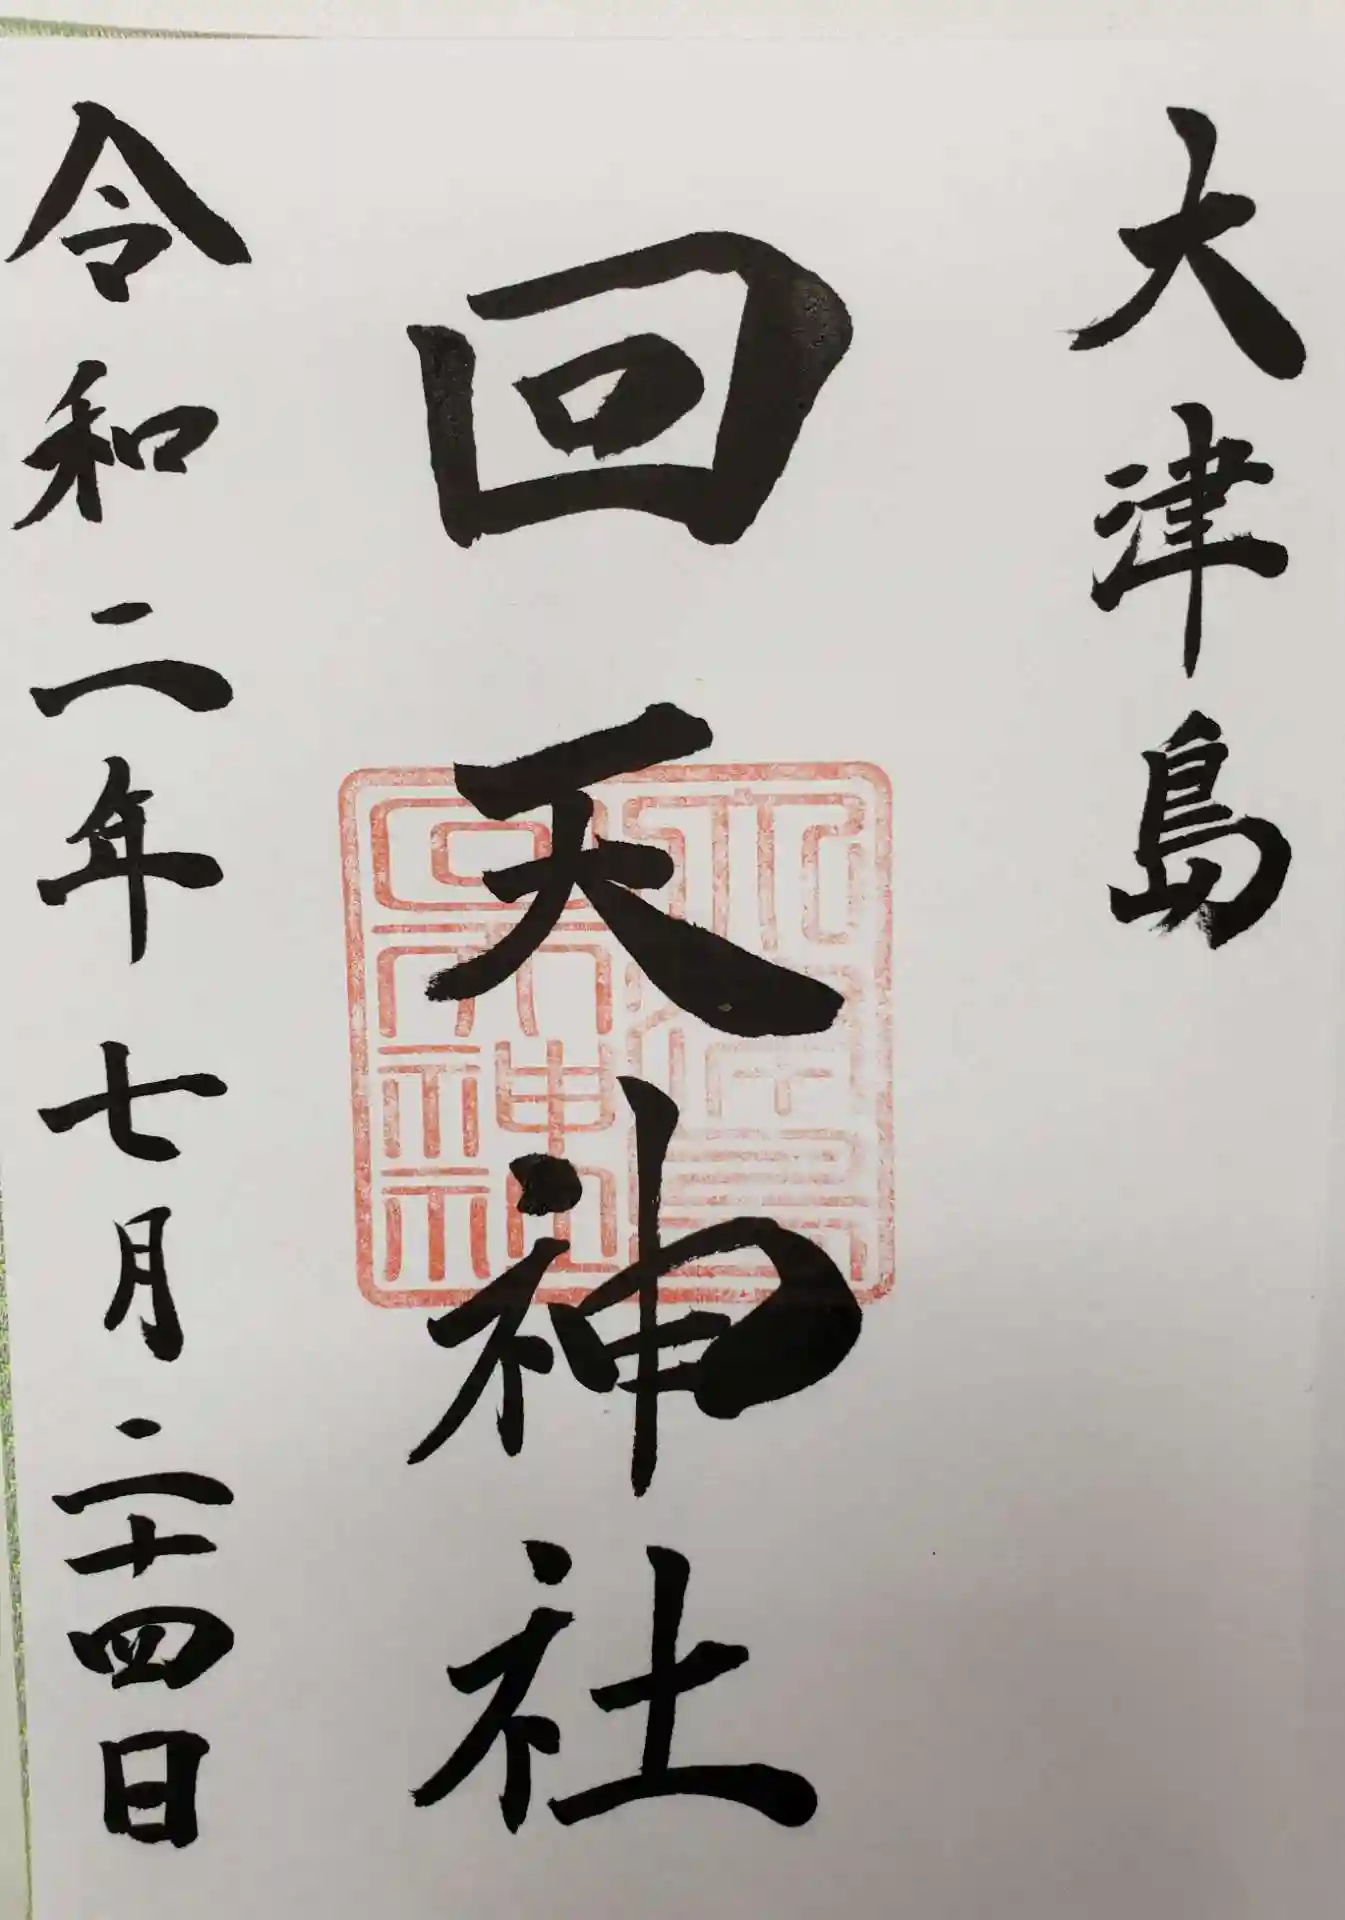 大津島
回天神社
令和二年七月二十四日